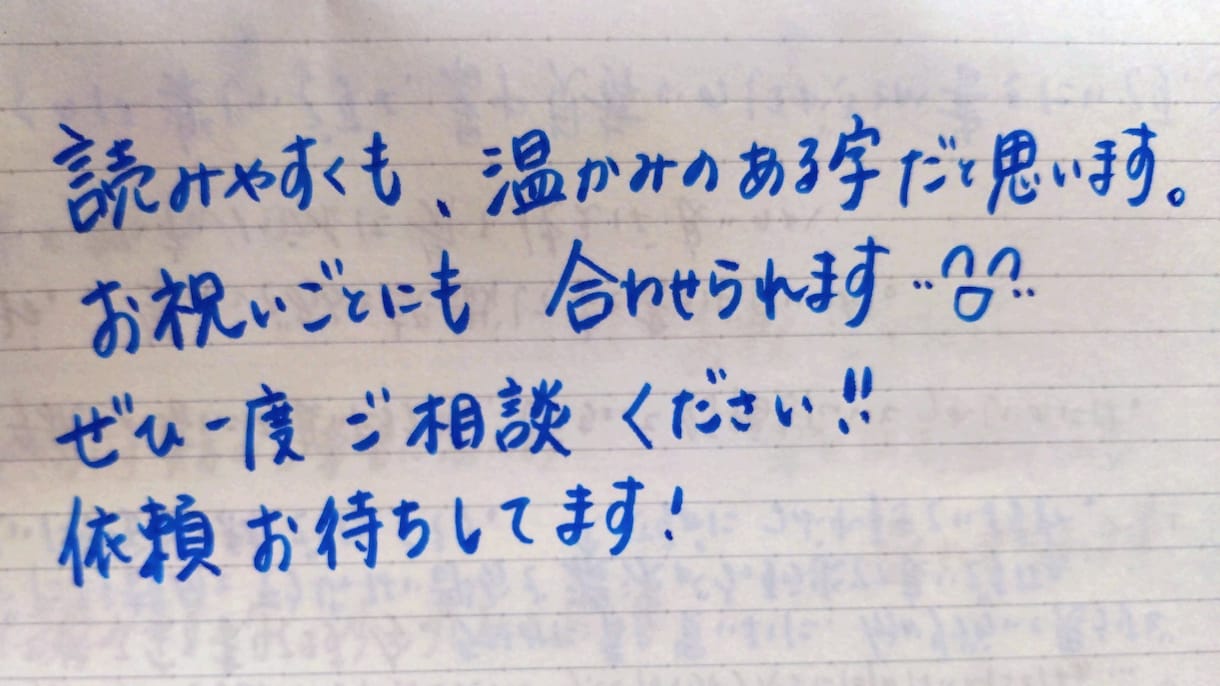 読みやすくも、温かみのある字だと思います。
お祝いごとにも 合わせられます
ぜひ一度ご相談ください!!
依頼お待ちしてます!